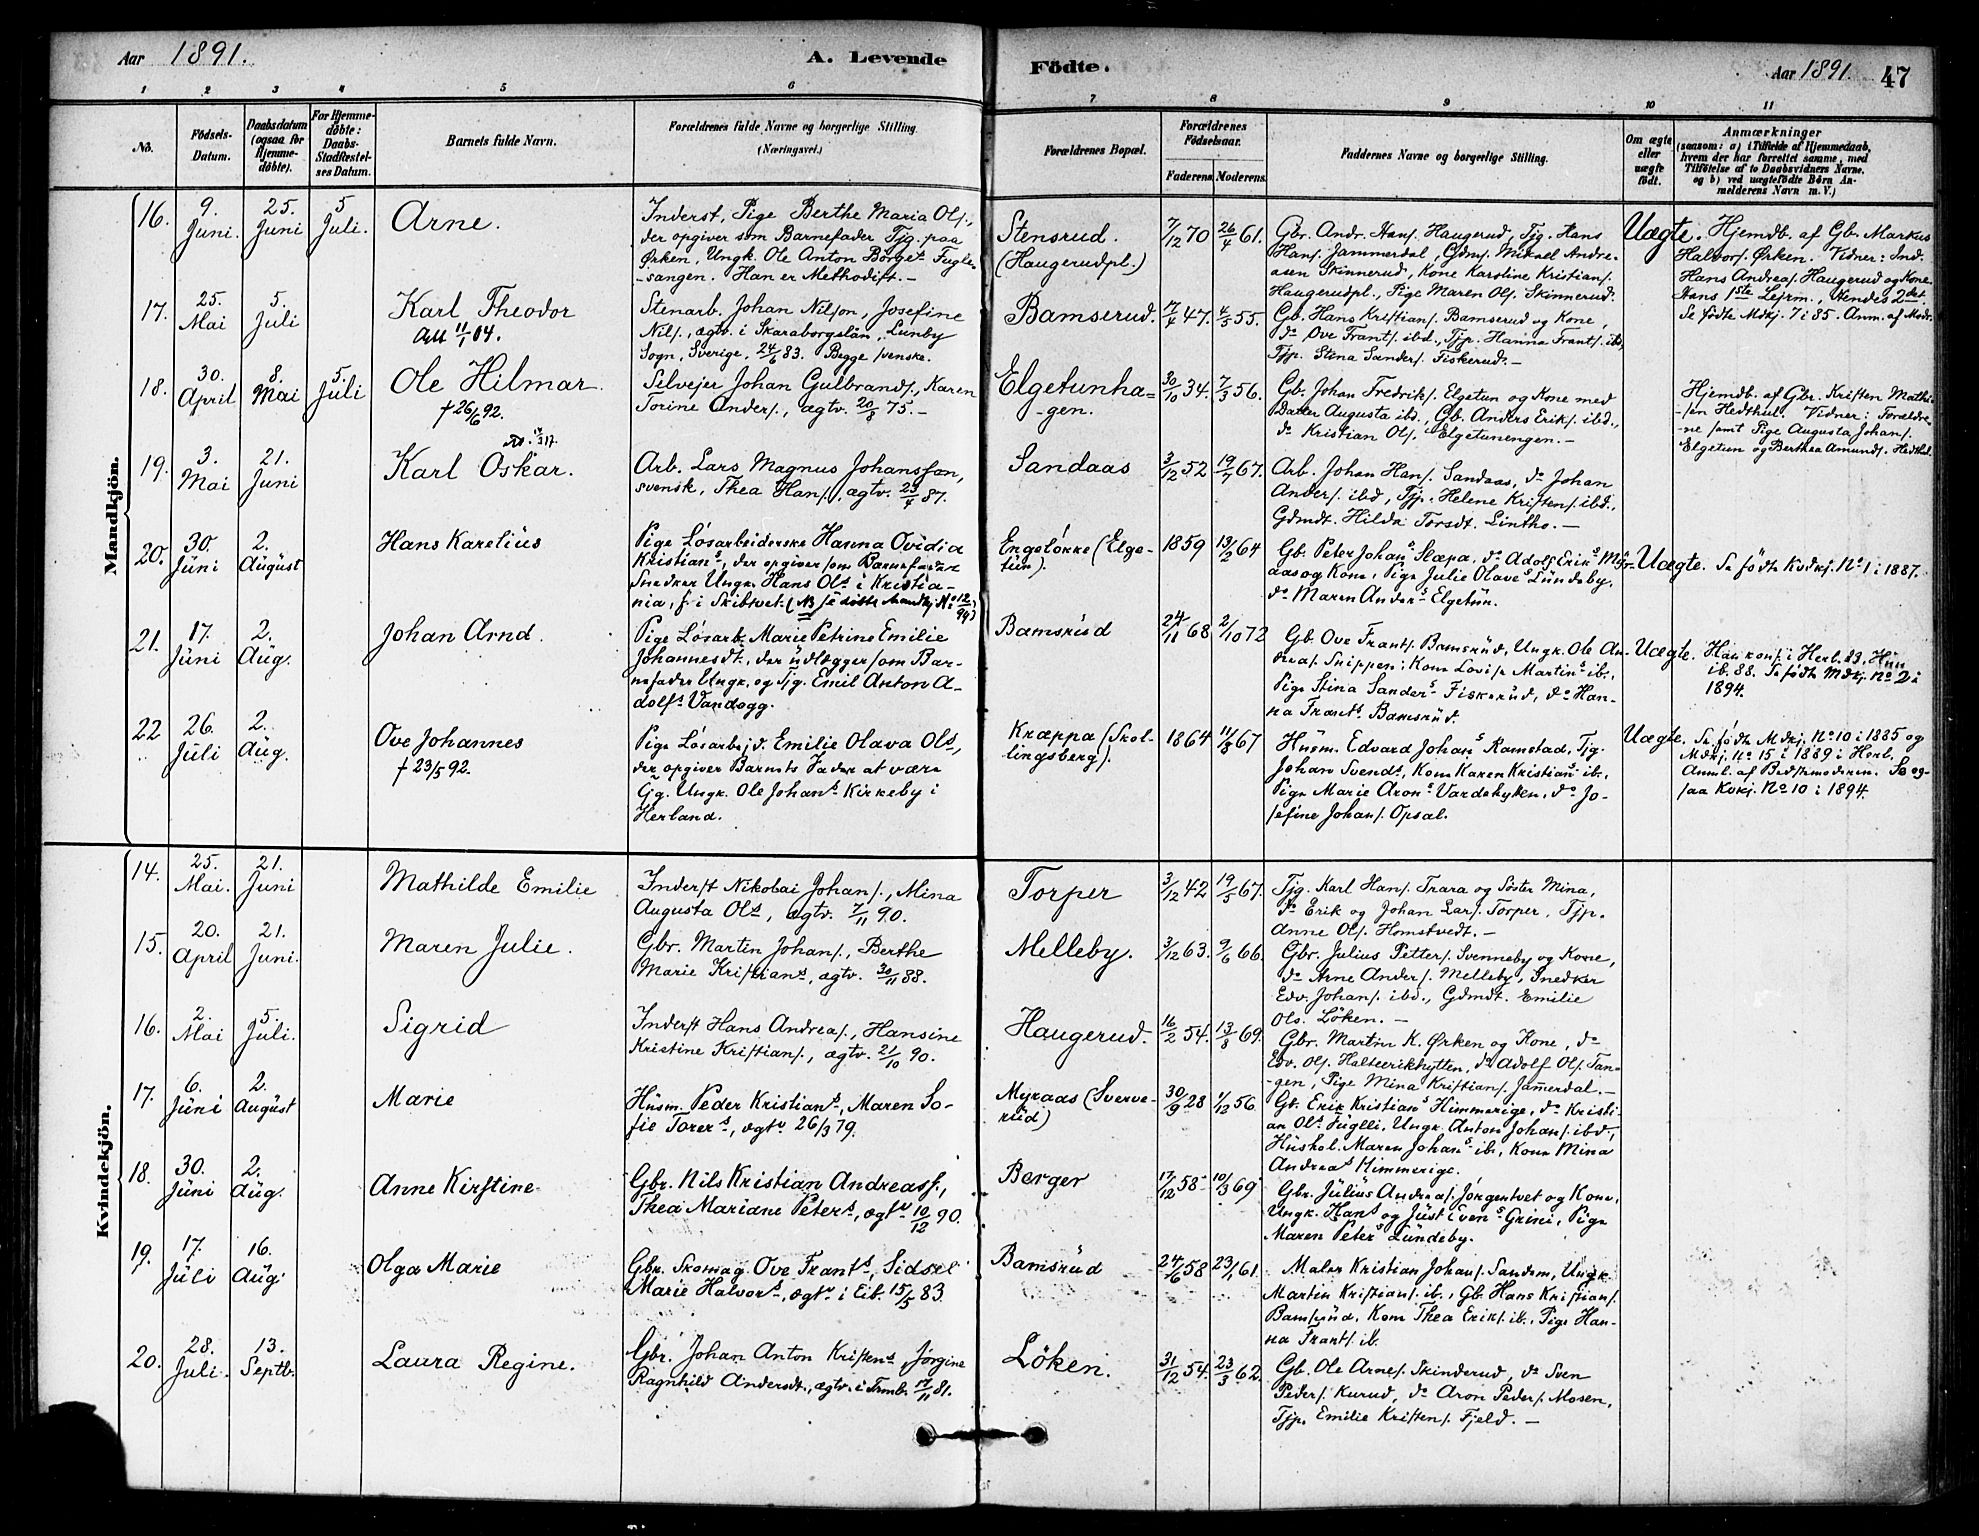 Aar 1891. A. Levende Födte. Aar 1891. 47
1 2 3 4 5 6 7 8 9 10 11
No.
Födsels-
Datum.
Daabsdatum
(ogsaa for
Hjemme-
döbte).
For Hjemme-
döbte:
Daabs-
Stadfæstel-
ses Datum.
Barnets fulde Navn.
Forældrenes fulde Navne og borgerlige Stilling.
(Næringsvei.)
Forældrenes Bopæl.
Forældrenes
Födselsaar.
Faderens. Moderens.
Faddernes Navne og borgerlige Stilling.
Om ægte
eller
uægte
födt.
Anmærkninger
(saasom: a) i Tilfælde af Hjemmedaab,
hvem der har forrettet samme, med
Tilföielse af to Daabsvidners Navne,
og b) ved uægtefödte Börn An-
melderens Navn m. V.)
Mandkjön.
16.
9.
Juni.
25.
Juni
5
Juli.
Arne.
Inderst, Pige Berthe Maria Ols.,
der opgiver som Barnefader Tjg. paa
Ørken, Ungk. Ole Anton Borget Fugle-
-sangen. Han er Methodist.-
Stensrud.
(Haugerudpl.)
7/12 70
26/4 61.
Gbr. Andr. Hans. Haugerud, Tjg. Hans
Hans. Jammerdal, Gdms. Mikael Andre-
asen Skinnerud, Kone Karoline Kristians.
Haugerudpl., Pige Maren Ols. Skinnerud.
Uægte.
Hjemdb. af Gb. Markus
Halvors. Ørken. Vidner: Ind.
Hans Andreas. Haugerud og Kone.
Hans 1ste Lejrm., Hendes 2det.
Se fødte Mdkj. 7 i 85. Anm. af Modr.
17.
25.
Mai
5.
Juli
Karl Theodor
Att 11/1 04.
Stenarb. Johan Nilson, Josefine
Nils., ægtv. i Skaraborgslän, Lunby
Sogn, Sverige, 24/6 83. Begge svenske.
Bamserud.
17/4 47.
4/5 55.
Gb. Hans Kristians. Bamserud og Kone,
do Ove Frants. ibd., Tjp. Hanna Frants. ibd,
Tjp. Stina Sanders. Fiskerud.-
18.
30.
April
8.
Mai
5.
Juli
Ole Hilmar.
† 26/6 92.
Selvejer Johan Gulbrands., Karen
Torine Anders., ægtv. 20/8 75.-
Elgetunha-
-gen.
30/10 34.
7/3 56.
Gb. Johan Fredriks. Elgetun og Kone med
Datter Augusta ibd., Gb. Anders Eriks. ibd.,
do Kristian Ols. Elgetunengen.-
Hjemdb. af Gbr. Kristen Mathi-
sen Hedthul. Vidner: Forældre-
-ne samt Pige Augusta Johans.
Elgetun og Berthea Amunds. Hedthul.
19.
3.
Mai
21.
Juni
Karl Oskar.
Arb. Lars Magnus Johansson,
svensk, Thea Hans., ægtv. 23/4 87.
Sandaas
3/12 52
19/7 67.
Arb. Johan Hans. Sandaas, do Johan
Anders. ibd, Tjp. Helene Kristens. ibd.,
Gdmdt. Hilda Torsdt. Lintho.-
20.
30.
Juni
2.
August
Hans Karelius
Pige Løsarbeiderske Hanna Ovidia
Kristians, der opgiver som Barnefader
Snedker Ungk. Hans Ols. i Kristia-
nia, f. i Skibtvet.
Engeløkke (Elge-
tun).
1859
13/2 64
Gb. Peter Johans. Slæpa, do Adolf Eriks. Myr-
aas og Kone, Pige Julie Olave Lundeby,
do Maren Anders. Elgetun.
Uægte.
Se fødte Kvdkj. No 1 i 1887.
21.
17.
Juni
2.
Aug.
Johan Arnd.
Pige Løsarb. Marie Petrine Emilie
Johannesdt., der udlægger som Bar-
nefader Ungk. og Tjg. Emil Anton A-
dolfs. Vandogg.
Bamsrud
24/11 68
2/10 72
Gb. Ove Frants. Bamsrud, Ungk. Ole An-
dreas. Snippen, Kone Lovise Martins. ib.,
Pige Stina Sanders. Fiskerud, do Han-
na Frants. Bamsrud.
Uægte.
Han konf. i Herl. 83, Hun
ib. 88. Se fødte Mdkj. No 2 i
1894.
22
26.
Juli
2.
Aug.
Ove Johannes
† 23/5 92.
Pige Løsarbejd. Emilie Olava Ols.,
der opgiver Barnets Fader at være
Gg. Ungk. Ole Johans. Kirkeby i
Herland.
Kræppa (Skol-
lingsberg).
1864
11/8 67
Husm. Edvard Johans. Ramstad, Tjg.
Johan Svends., Kone Karen Kristians. ib.,
Pige Marie Arons. Vardehytten, do Jo-
sefine Johans. Opsal.
Uægte.
Se fødte Mdkj. No 10 i 1885 og
Mdkj. No 15 i 1889 i Herl.
Anml. af Bedstemoderen. Se og-
saa Kvkj. No 10 i 1894.
Kvindekjön.
14.
25.
Mai.
21.
Juni
Mathilde Emilie
Inderst Nikolai Johans., Mina
Augusta Ols., ægtv. 7/11 90.
Torper
3/12 42
19/5 67.
Tjg. Karl Hans. Trara og Søster Mina,
do Erik og Johan Lars. Torper, Tjp.
Anne Ols. Homstvedt.-
15.
20.
April
21.
Juni.
Maren Julie.
Gbr. Martin Johans., Berthe
Marie Kristians., ægtv. 30/11 88.
Melleby.
3/12 63.
9/6 66.
Gbr. Julius Petters. Svenneby og Kone,
do Arne Anders. Melleby, Snedker
Edv. Johans. ibd., Gdmdt. Emilie
Ols. Løken.-
16.
2.
Mai
5.
Juli.
Sigrid
Inderst Hans Andreas., Hansine
Kristine Kristians., ægtv. 21/10 90.
Haugerud.
16/2 54.
13/8 69.
Gbr. Martin K. Ørken og Kone, do
Edv. Ols. Halteerikhytten, do Adolf Ols. Tan-
-gen, Pige Mina Kristians. Jamerdal.-
17.
6.
Juni
2.
August
Marie
Husm. Peder Kristians., Maren So-
fie Torers., ægtv. 26/3 79.
Myraas (Sverve-
rud)
30/9 28
1/12 56
Gb. Erik Kristians. Himmerige, do Kristi-
an Ols. Fuglli, Ungk. Anton Johans. ibd.,
Hushol. Maren Johans. ib., Kone Mina
Andreas. Himmerige.
18.
30.
Juni
2.
Aug.
Anne Kirstine
Gbr. Nils Kristian Andreass.,
Thea Mariane Peters., ægtv. 10/12 90.
Berger
17/12 58
10/3 69
Gbr. Julius Andreas. Jørgentvet og Kone,
Ungk. Hans og Just Evens. Grini, Pige
Maren Peters. Lundeby.
19.
17.
Juli
16.
Aug.
Olga Marie
Gbr. Skomag. Ove Frants., Sidsel
Marie Halvors., ægtv. i Eib. 15/5 83.
Bamsrud
24/6 58
23/1 61.
Maler Kristian Johans. Sandem, Ungk.
Martin Kristians. ib., Gb. Hans Kristians.
Bamsrud, Kone Thea Eriks. ib., Pige Han-
na Frants. ib.
20.
28.
Juli.
13.
Septb.
Laura Regine.
Gbr. Johan Anton Kristens., Jørgine
Ragnhild Andersdt., ægtv. i Trmb. 17/11 81.
Löken.
31/12 54.
23/3 62.
Gb. Ole Arnes. Skinderud, do Sven
Peders. Kurud, do Aron Peders. Mosen,
Tjp. Emilie Kristens. Fjeld.-